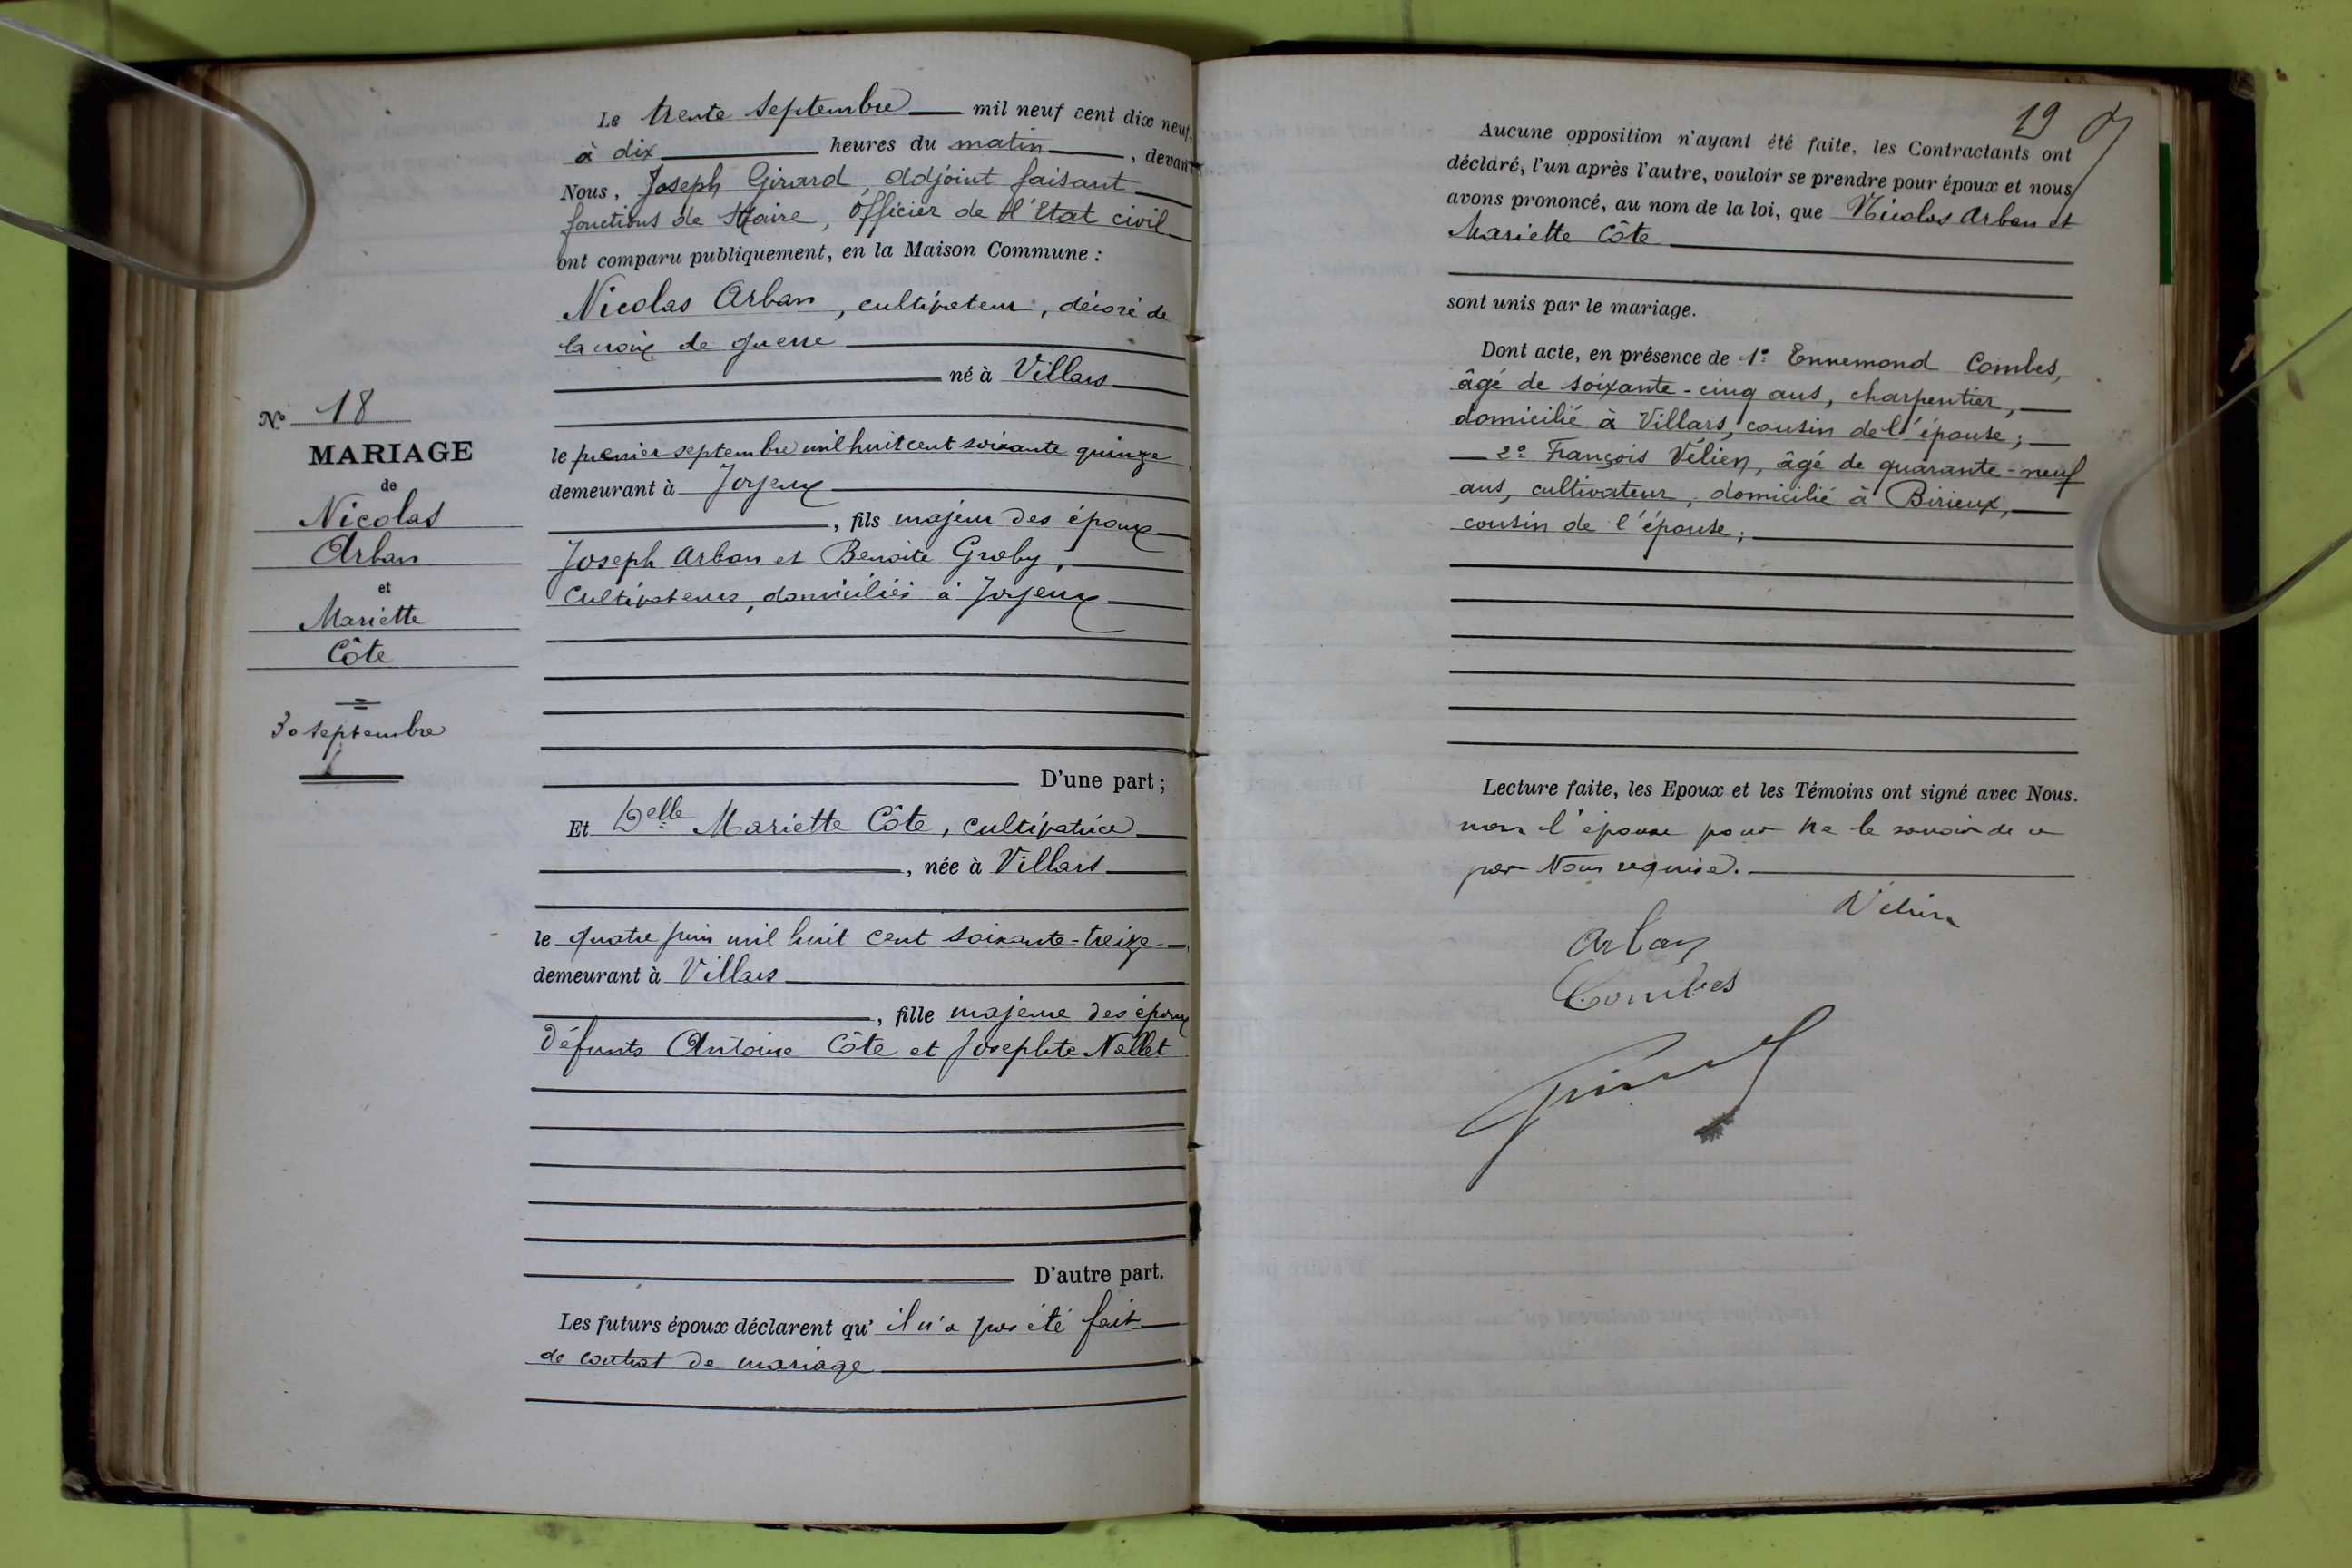 Le trente septembre mil neuf cent dix neuf,
à dix heures du matin, devant
Nous, Joseph Girard, adjoint faisant
fonctions de Maire, Officier de l'Etat civil
ont comparu publiquement, en la Maison Commune :
Nicolas Arban, cultivateur, décoré de
la croix de guerre
né à Villars
le premier septembre mil huit cent soixante quinze
demeurant à Joyeux
, fils majeur des époux
Joseph Arban et Benoite Groby,
Cultivateurs, domiciliés à Joyeux
D'une part ;
Et Delle Mariette Côte, cultivatrice
, née à Villars
le quatre juin mil huit cent soixante-treize
demeurant à Villars
, fille majeure des époux
défunts Antoine Côte et Josephte Nallet
D'autre part.
Les futurs époux déclarent qu' il n'a pas été fait
de contrat de mariage
No 18
MARIAGE
de
Nicolas
Arban
et
Mariette
Côte
30 septembre
19
Aucune opposition n'ayant été faite, les Contractants ont
déclaré, l'un après l'autre, vouloir se prendre pour époux et nous
avons prononcé, au nom de la loi, que Nicolas Arban et
Mariette Côte
sont unis par le mariage.
Dont acte, en présence de 1º Ennemond Combes,
âgé de soixante-cinq ans, charpentier,
domicilié à Villars, cousin de l'épouse ;
2º François Vélien, âgé de quarante-neuf
ans, cultivateur, domicilié à Birieux,
cousin de l'épouse ;
Lecture faite, les Epoux et les Témoins ont signé avec Nous.
non l'épouse pour ne le savoir de ce
par Nous requise.
Vélien
Arban
Combes
Girard